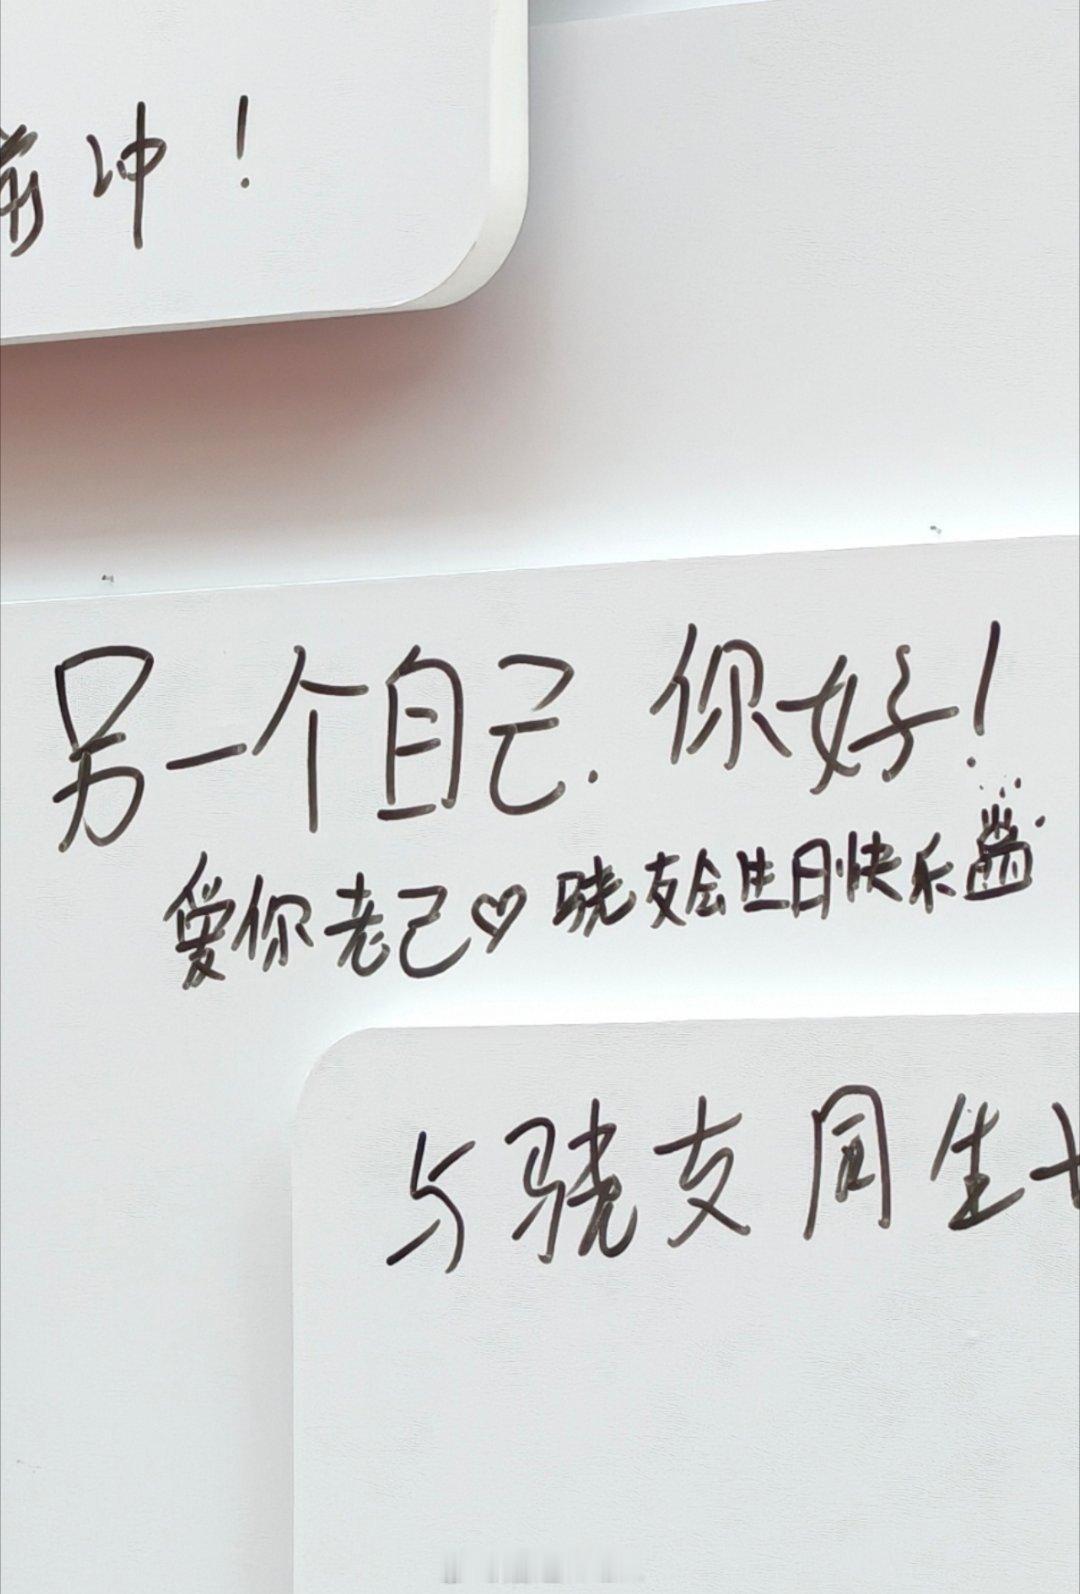 前冲!
另一个自己. 你好!
爱你老己♡ 骁支会生日快乐
与骁支同生